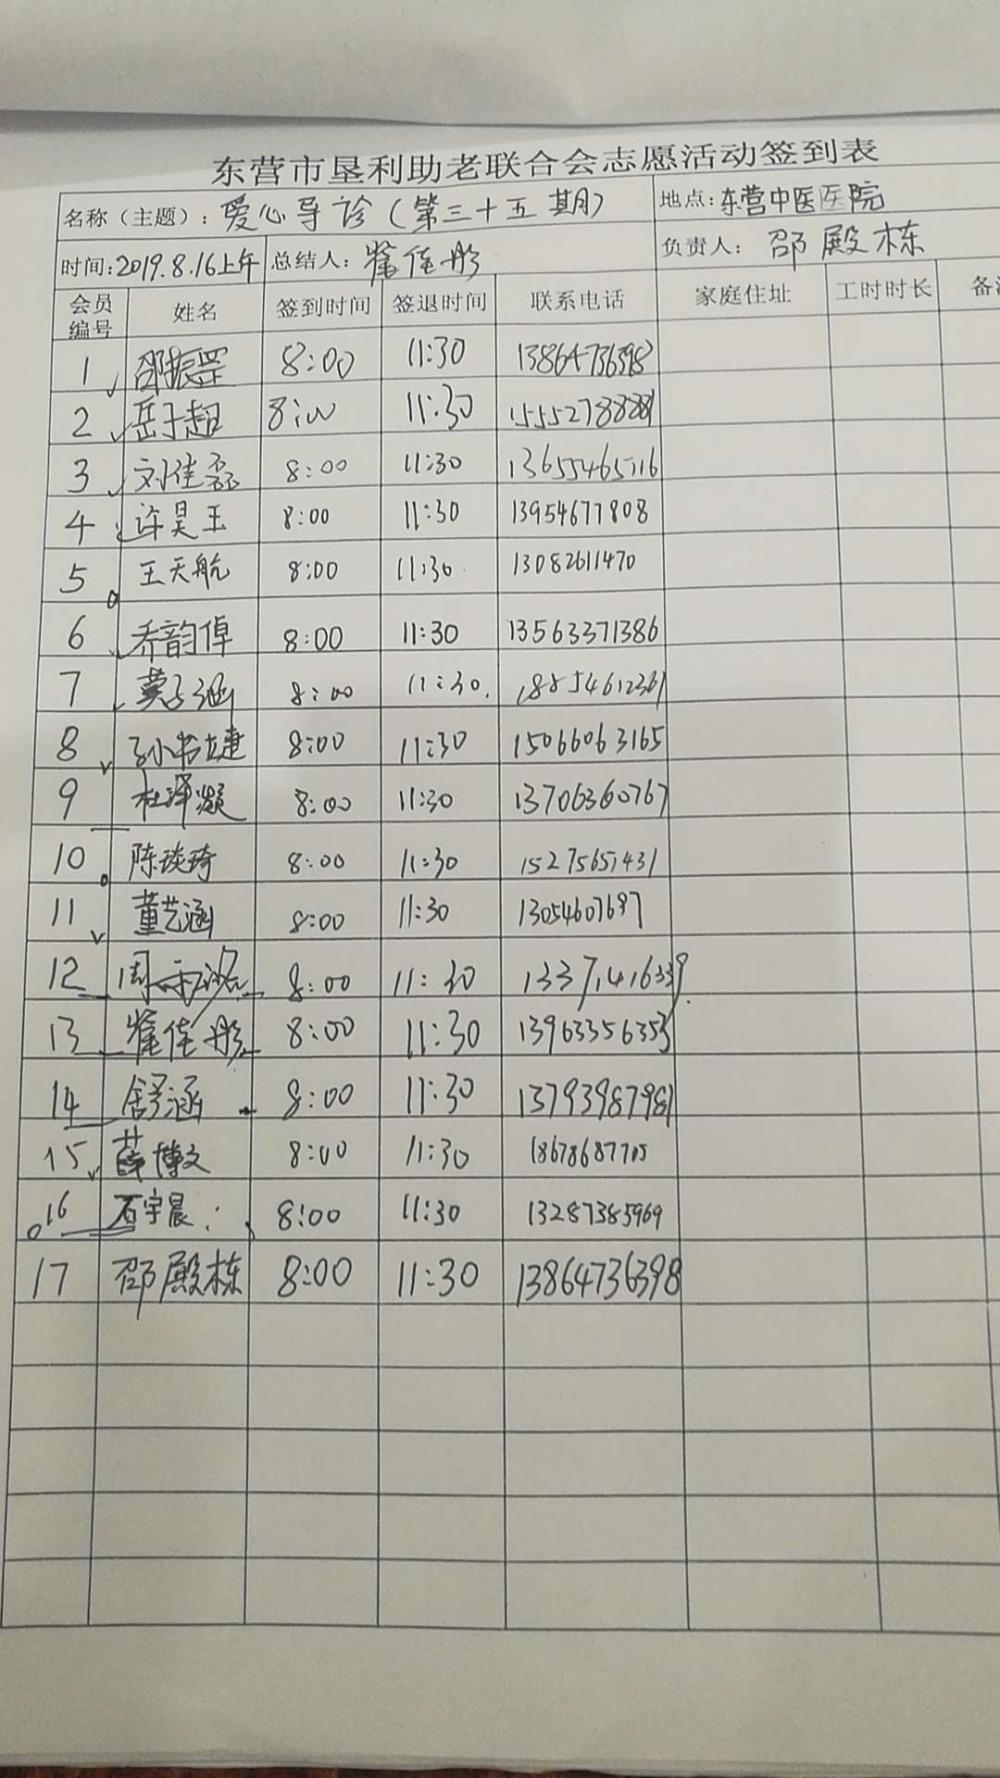 东营市垦利助老联合会志愿活动签到表
名称（主题）：爱心导诊（第三十五期） 地点：东营中医医院
时间：2019.8.16上午 总结人：崔佳彤 负责人：邵殿栋
会员编号 姓名 签到时间 签退时间 联系电话 家庭住址 工时时长 备
1 邵振罡 8:00 11:30 13864736398
2 岳子超 8:00 11:30
3 刘佳磊 8:00 11:30 13655465116
4 许昊王 8:00 11:30 13954677808
5 王天航 8:00 11:30 13082611470
6 乔韵倬 8:00 11:30 13563371386
7 黄子涵 8:00 11:30 18854612361
8 孙书婕 8:00 11:30 15066063165
9 杜泽凝 8:00 11:30 13706360767
10 陈琰琦 8:00 11:30 15275657431
11 董艺涵 8:00 11:30 13054607697
12 周 8:00 11:30
13 崔佳彤 8:00 11:30 13963356353
14 舒涵 8:00 11:30 13793987981
15 薛博文 8:00 11:30 18678687705
16 石宇晨 8:00 11:30 13287385969
17 邵殿栋 8:00 11:30 13864736398